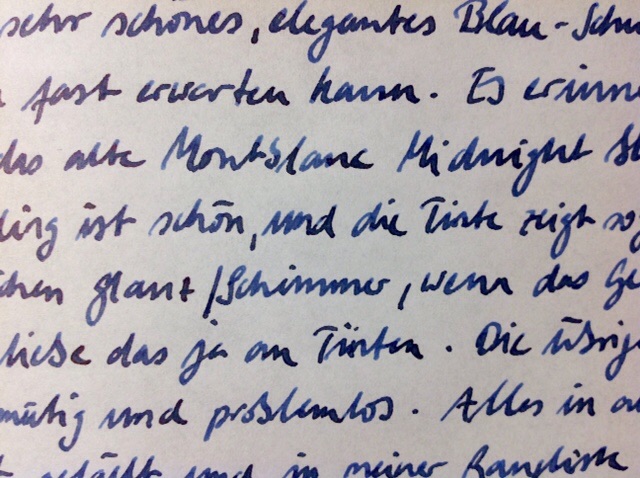 sehr schönes, elegantes Blau-Schw
fast erwarten kann. Es erinne
das alte Montblanc Midnight Bl
ding ist schön, und die Tinte zeigt so
chen glanz/Schimmer, wenn das Ge
liebe das ja an Tinten. Die übrige
mütig und problemlos. Alles in a
und in meiner Rangliste